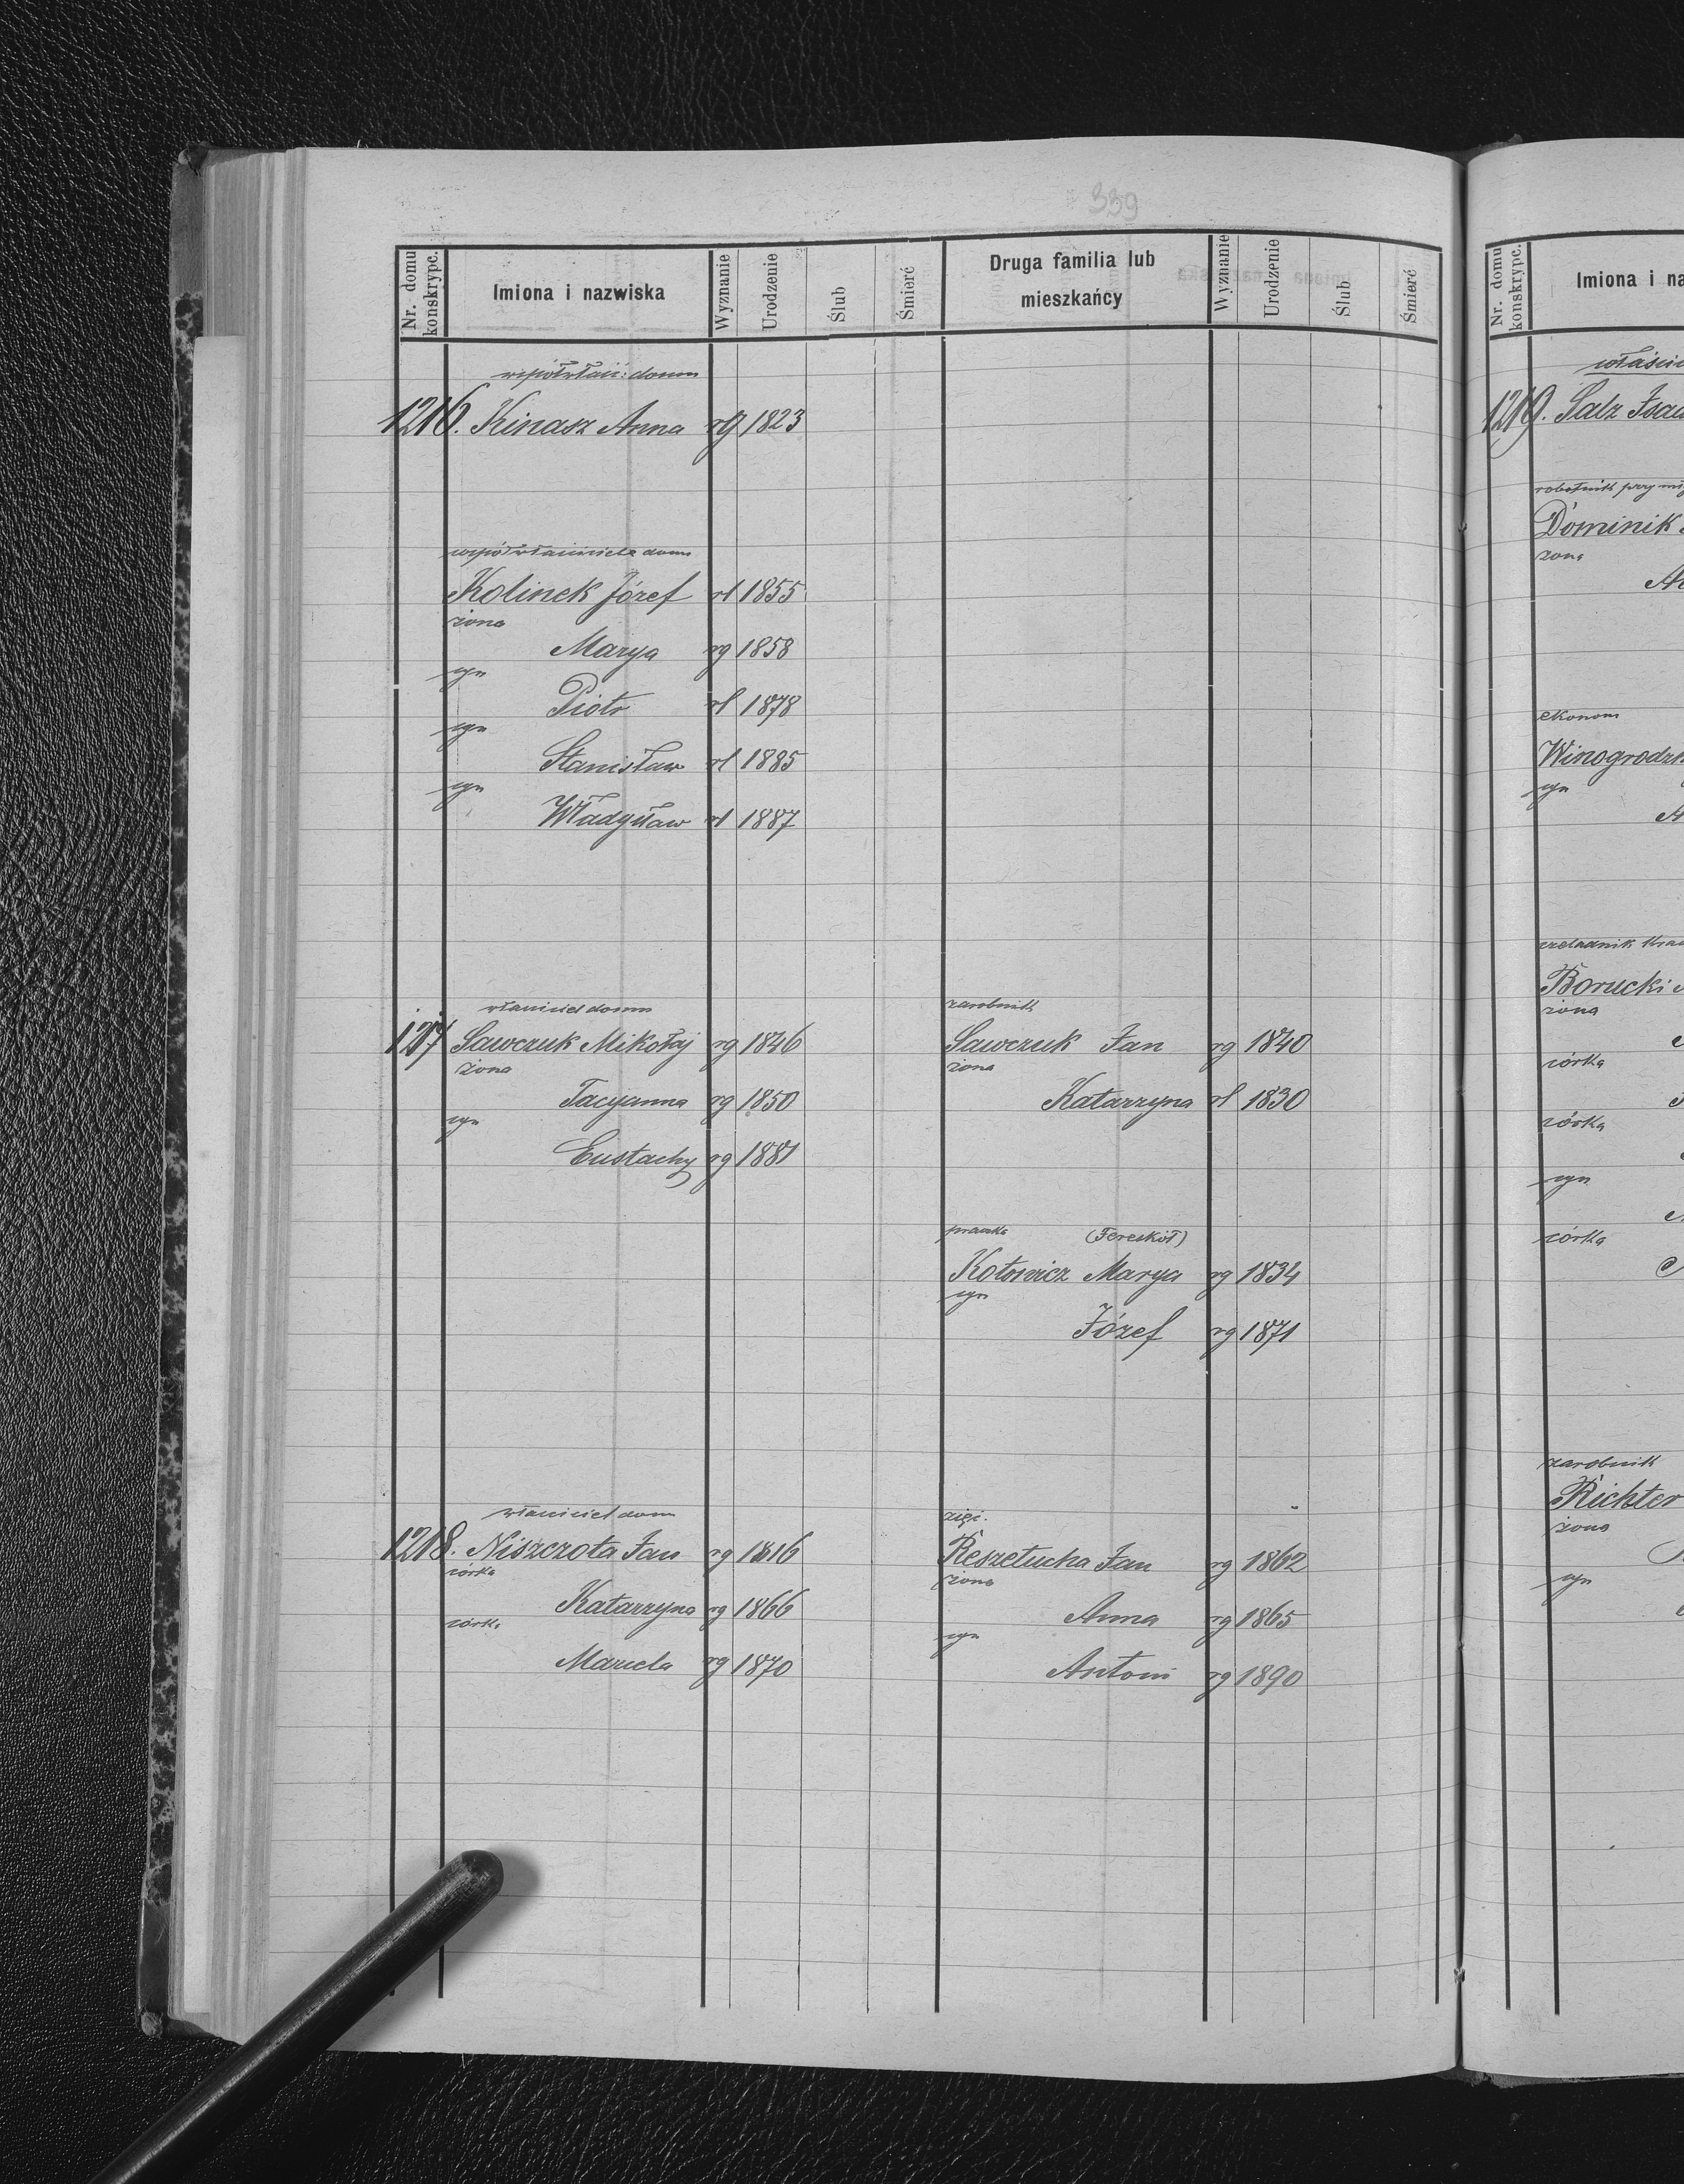 339
Nr. domu konskrypc.
Imiona i nazwiska
Wyznanie
Urodzenie
Ślub
Śmierć
Druga familia lub mieszkańcy
Wyznanie
Urodzenie
Ślub
Śmierć
współwłaść: domu
1216. Kinasz Anna rg 1823
współwłaściciele domu
Kolinek Józef rł 1855
żona
Marya rg 1858
syn
Piotr rł 1878
syn
Stanisław rł 1885
syn
Władysław rł 1887
właściciel domu
1217 Sawczuk Mikołaj rg 1846
żona
Tacyanna rg 1850
syn
Eustachy rg 1881
zarobnik
Sawczuk Jan rg 1840
żona
Katarzyna rł 1830
praczka (Fereskół)
Kotowicz Marya rg 1834
syn
Józef rg 1871
właściciel domu
1218. Niszczota Jan rg 1816
córka
Katarzyna rg 1866
córka
Maryela rg 1870
zięć.
Reszetucha Jan rg 1862
żona
Anna rg 1865
syn
Antoni rg 1890
Nr. domu konskrypc.
Imiona i na
właścic
1219. Salz Isaa
robotnik przy
Dominik
żona
ekonom
Winogrodzk
syn
czeladnik
Borucki
żona
córka
córka
syn
córka
zarobnik
Richter
żona
syn